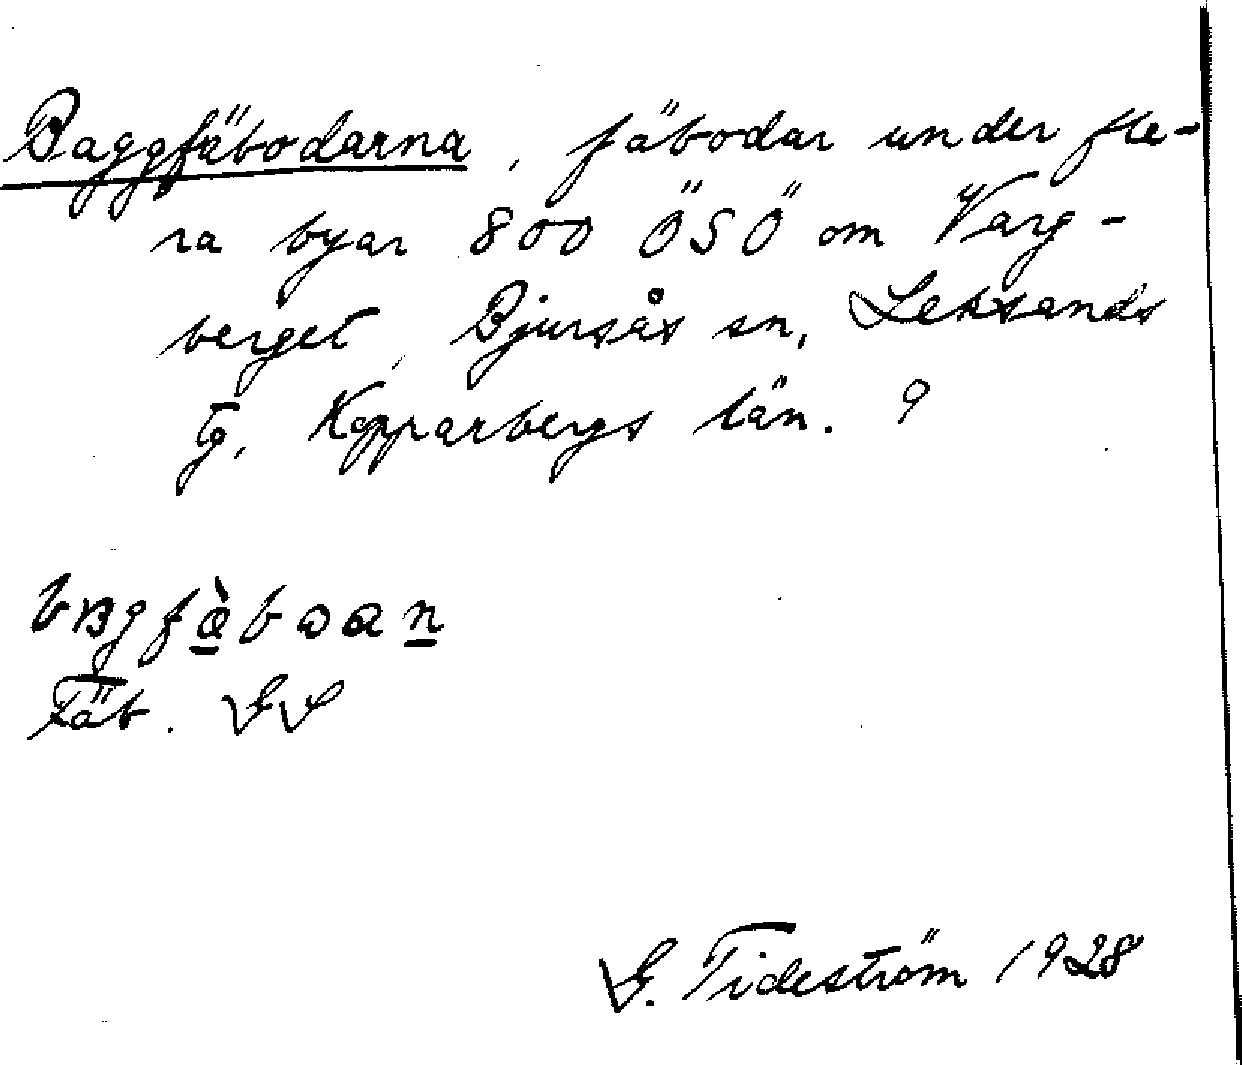 Baggfäbodarna, fäbodar under fle-
ra byar 800 ÖSÖ om Varg-
berget, Bjursås sn, Leksands
tg, Kopparbergs län. 9
Fäb.
G. Tideström 1928